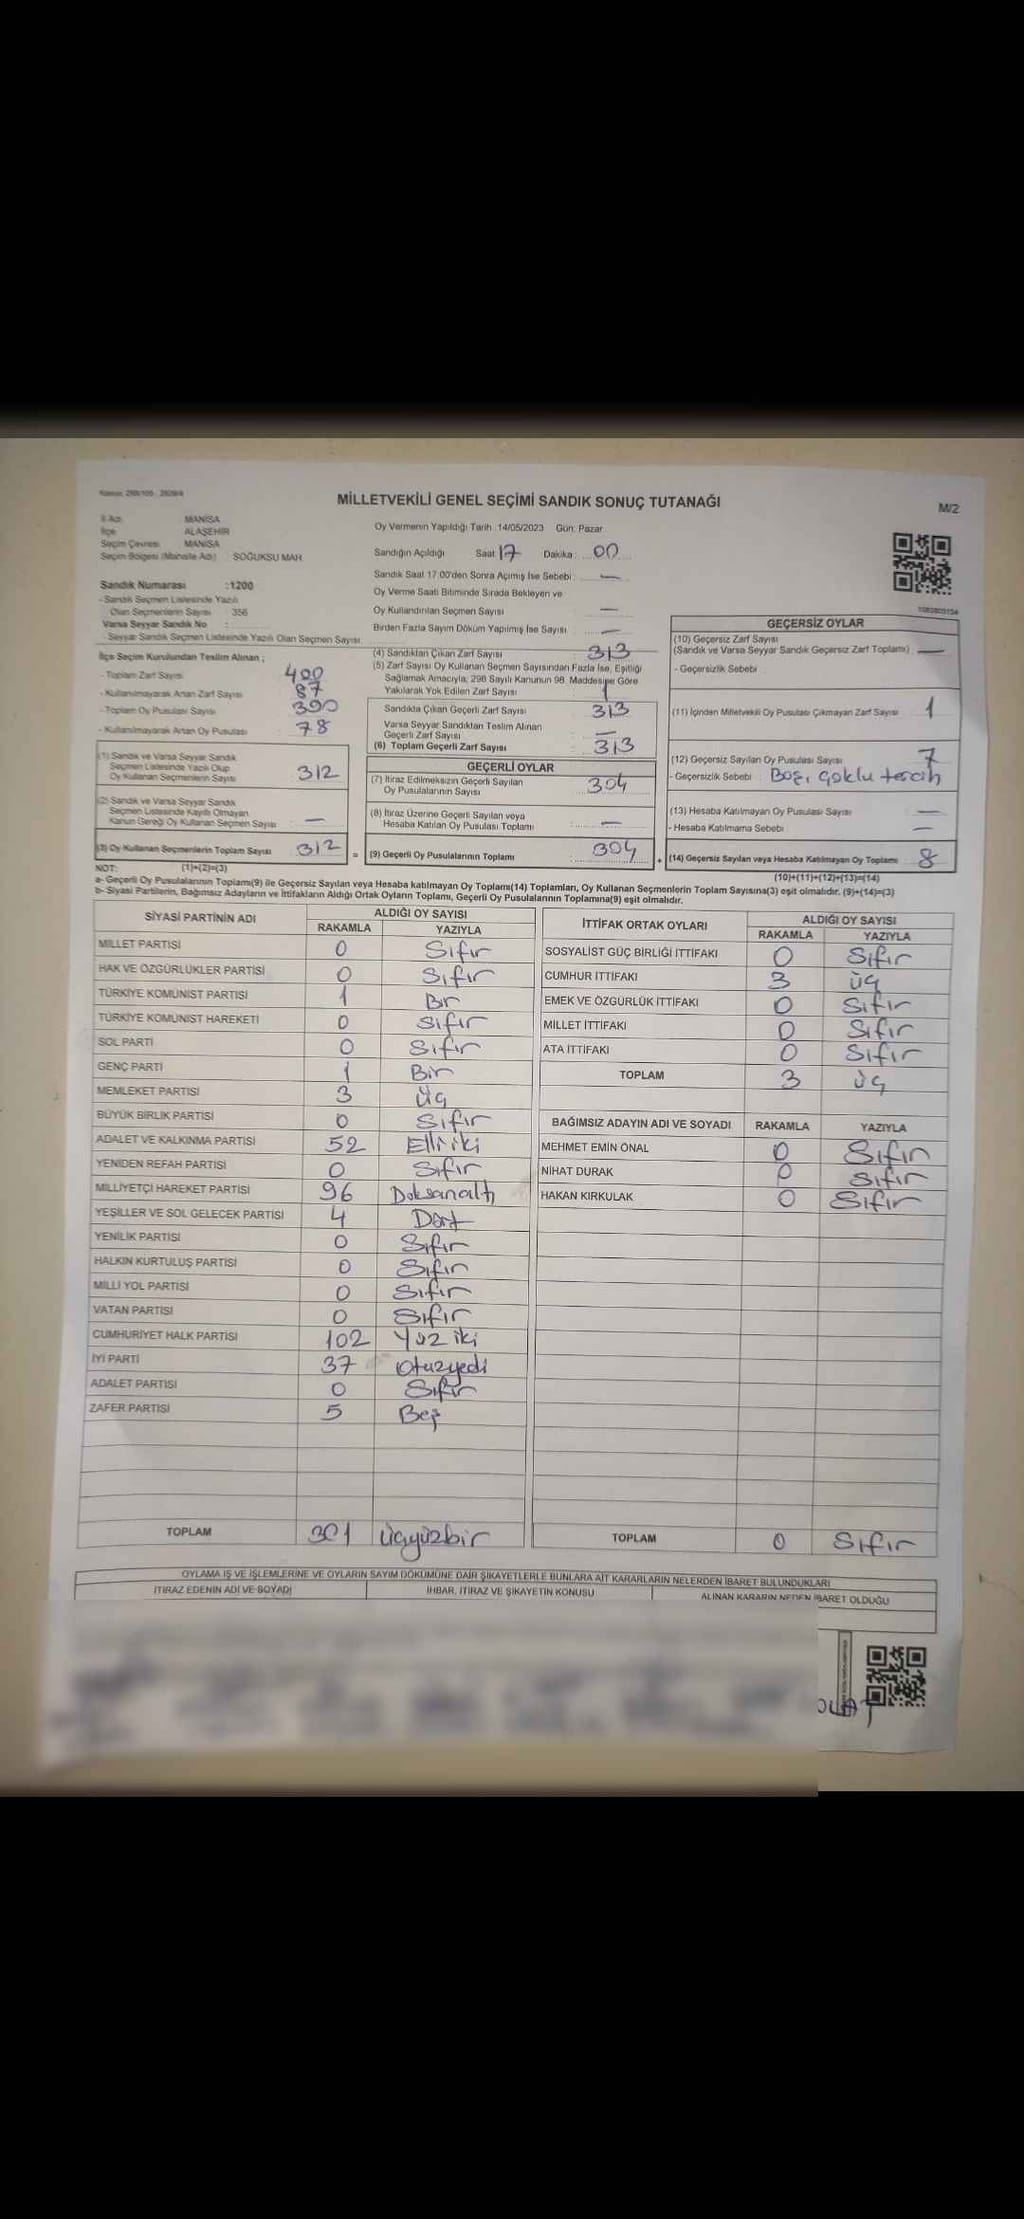 Kanun: 298/105 - 2839/4
MİLLETVEKİLİ GENEL SEÇİMİ SANDIK SONUÇ TUTANAĞI
M/2
İl Adı MANİSA
İlçe ALAŞEHİR
Seçim Çevresi MANİSA
Seçim Bölgesi (Mahalle Adı) SOĞUKSU MAH.
Oy Vermenin Yapıldığı Tarih :14/05/2023 Gün: Pazar
Sandığın Açıldığı Saat 17 Dakika : 00
Sandık Saat 17:00'den Sonra Açımış İse Sebebi : —
Oy Verme Saati Bitiminde Sırada Bekleyen ve
Oy Kullandırılan Seçmen Sayısı —
Birden Fazla Sayım Döküm Yapılmış İse Sayısı : —
Sandık Numarası :1200
- Sandık Seçmen Listesinde Yazılı
Olan Seçmenlerin Sayısı : 356
Varsa Seyyar Sandık No :
- Seyyar Sandık Seçmen Listesinde Yazılı Olan Seçmen Sayısı:
İlçe Seçim Kurulundan Teslim Alınan ;
- Toplam Zarf Sayısı 400
- Kullanılmayarak Artan Zarf Sayısı 87
- Toplam Oy Pusulası Sayısı 390
- Kullanılmayarak Artan Oy Pusulası 78
(1) Sandık ve Varsa Seyyar Sandık
Seçmen Listesinde Yazılı Olup
Oy Kullanan Seçmenlerin Sayısı 312
(2) Sandık ve Varsa Seyyar Sandık
Seçmen Listesinde Kayıtlı Olmayan
Kanun Gereği Oy Kullanan Seçmen Sayısı : —
(3) Oy Kullanan Seçmenlerin Toplam Sayısı 312
(1)+(2)=(3)
(4) Sandıktan Çıkan Zarf Sayısı : 313
(5) Zarf Sayısı Oy Kullanan Seçmen Sayısından Fazla İse, Eşitliği
Sağlamak Amacıyla, 298 Sayılı Kanunun 98. Maddesine Göre
Yakılarak Yok Edilen Zarf Sayısı 1
Sandıkta Çıkan Geçerli Zarf Sayısı : 313
Varsa Seyyar Sandıktan Teslim Alınan
Geçerli Zarf Sayısı —
(6) Toplam Geçerli Zarf Sayısı : 313
GEÇERLİ OYLAR
(7) İtiraz Edilmeksizin Geçerli Sayılan
Oy Pusulalarının Sayısı : 304
(8) İtiraz Üzerine Geçerli Sayılan veya
Hesaba Katılan Oy Pusulası Toplamı : —
= (9) Geçerli Oy Pusulalarının Toplamı 304 +
1082805154
GEÇERSİZ OYLAR
(10) Geçersiz Zarf Sayısı
(Sandık ve Varsa Seyyar Sandık Geçersiz Zarf Toplamı) : —
- Geçersizlik Sebebi :
(11) İçinden Milletvekili Oy Pusulası Çıkmayan Zarf Sayısı 1
(12) Geçersiz Sayılan Oy Pusulası Sayısı 7
- Geçersizlik Sebebi : Boş, çoklu tercih
(13) Hesaba Katılmayan Oy Pusulası Sayısı —
- Hesaba Katılmama Sebebi : —
(14) Geçersiz Sayılan veya Hesaba Katılmayan Oy Toplamı 8
(10)+(11)+(12)+(13)=(14)
NOT:
a- Geçerli Oy Pusulalarının Toplamı(9) ile Geçersiz Sayılan veya Hesaba katılmayan Oy Toplamı(14) Toplamları, Oy Kullanan Seçmenlerin Toplam Sayısına(3) eşit olmalıdır. (9)+(14)=(3)
b- Siyasi Partilerin, Bağımsız Adayların ve İttifakların Aldığı Ortak Oyların Toplamı, Geçerli Oy Pusulalarının Toplamına(9) eşit olmalıdır.
SİYASİ PARTİNİN ADI ALDIĞI OY SAYISI
RAKAMLA YAZIYLA
MİLLET PARTİSİ 0 Sıfır
HAK VE ÖZGÜRLÜKLER PARTİSİ 0 Sıfır
TÜRKİYE KOMÜNİST PARTİSİ 1 Bir
TÜRKİYE KOMÜNİST HAREKETİ 0 Sıfır
SOL PARTİ 0 Sıfır
GENÇ PARTİ 1 Bir
MEMLEKET PARTİSİ 3 Üç
BÜYÜK BİRLİK PARTİSİ 0 Sıfır
ADALET VE KALKINMA PARTİSİ 52 Elli iki
YENİDEN REFAH PARTİSİ 0 Sıfır
MİLLİYETÇİ HAREKET PARTİSİ 96 Doksanaltı
YEŞİLLER VE SOL GELECEK PARTİSİ 4 Dört
YENİLİK PARTİSİ 0 Sıfır
HALKIN KURTULUŞ PARTİSİ 0 Sıfır
MİLLİ YOL PARTİSİ 0 Sıfır
VATAN PARTİSİ 0 Sıfır
CUMHURİYET HALK PARTİSİ 102 Yüz iki
İYİ PARTİ 37 Otuzyedi
ADALET PARTİSİ 0 Sıfır
ZAFER PARTİSİ 5 Beş
TOPLAM 301 Üçyüzbir
İTTİFAK ORTAK OYLARI ALDIĞI OY SAYISI
RAKAMLA YAZIYLA
SOSYALİST GÜÇ BİRLİĞİ İTTİFAKI 0 Sıfır
CUMHUR İTTİFAKI 3 üç
EMEK VE ÖZGÜRLÜK İTTİFAKI 0 Sıfır
MİLLET İTTİFAKI 0 Sıfır
ATA İTTİFAKI 0 Sıfır
TOPLAM 3 üç
BAĞIMSIZ ADAYIN ADI VE SOYADI RAKAMLA YAZIYLA
MEHMET EMİN ÖNAL 0 Sıfır
NİHAT DURAK 0 Sıfır
HAKAN KIRKULAK 0 Sıfır
TOPLAM 0 Sıfır
OYLAMA İŞ VE İŞLEMLERİNE VE OYLARIN SAYIM DÖKÜMÜNE DAİR ŞİKAYETLERLE BUNLARA AİT KARARLARIN NELERDEN İBARET BULUNDUKLARI
İTİRAZ EDENİN ADI VE SOYADI İHBAR, İTİRAZ VE ŞİKAYETİN KONUSU ALINAN KARARIN NEDEN İBARET OLDUĞU